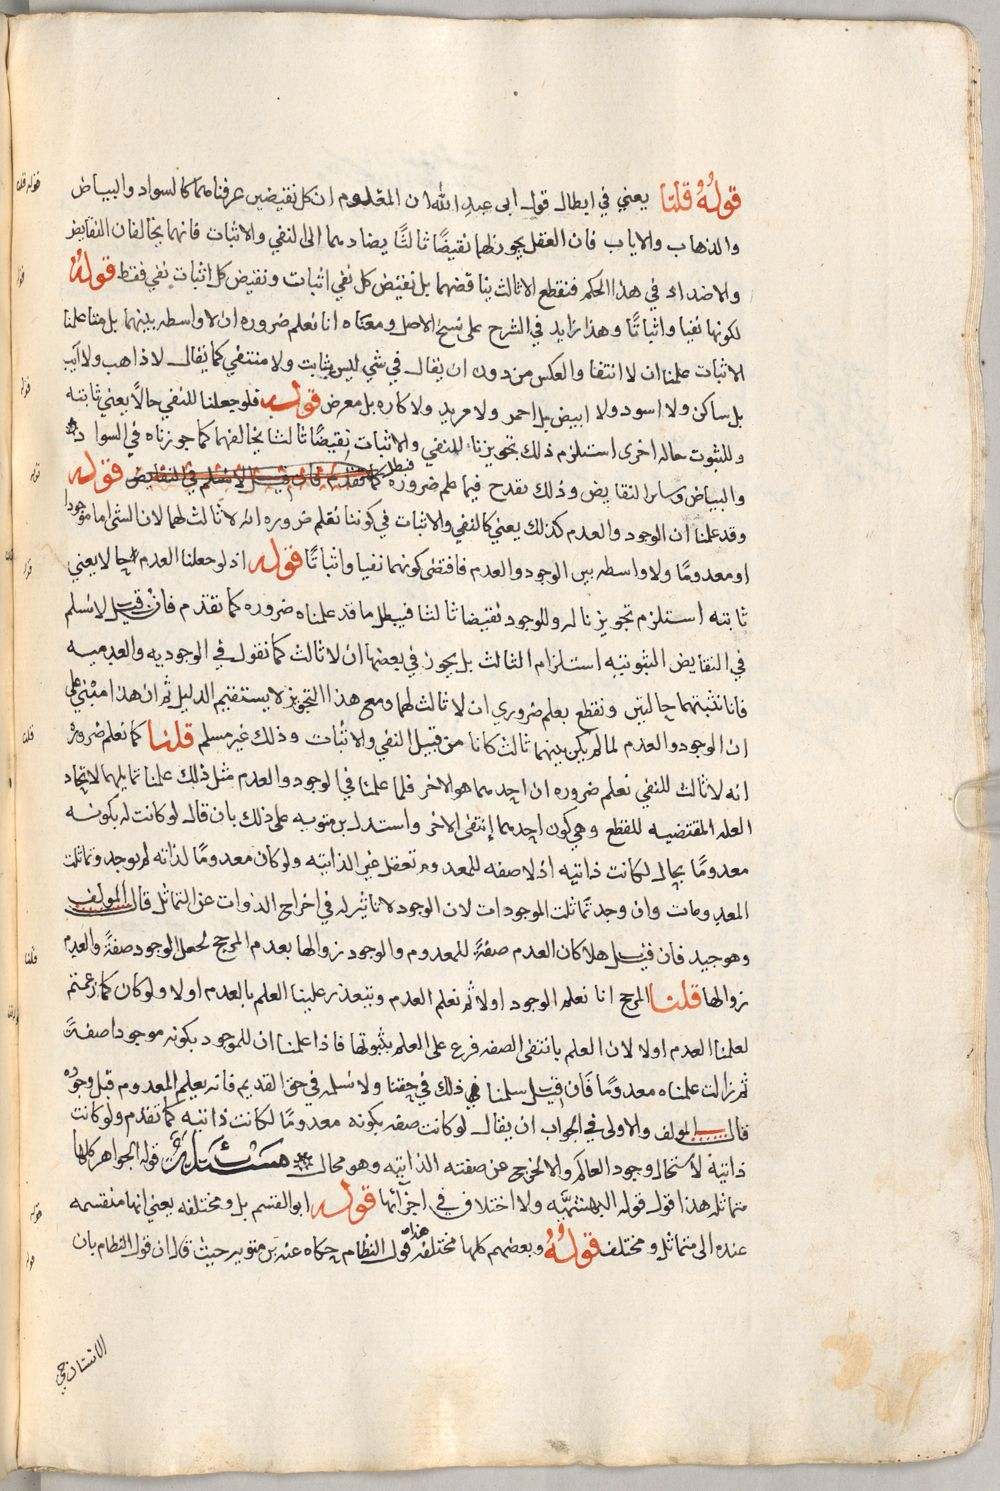 قوله قلنا يعني في ابطال قول ابى عبد الله ان المعلوم ان كل نقيضين عرفناهما كالسواد والبياض
والذهاب والاياب فان العقل يجوز لهما نقيضًا ثالثًا يضادهما الى النفي والاثبات فانهما يخالفان النقايض
والاضداد في هذا الحكم فنقطع الا ثالث يناقضهما بل نقيض كل نفي اثبات ونقيض كل اثبات نفي فقط قوله
لكونها نفيا واثباتًا وهذا زايد في الشرح على نسخ الاصل ومعناه انا نعلم ضروره ان لا واسطه بينهما بل متا علمنا
الاثبات علمنا ان لا انتفا والعكس من دون ان يقال في شي ليس بثابت ولا منتفي كما يقال لا ذاهب ولا آيب
بل ساكن ولا اسود ولا ابيض بل احمر ولا مريد ولا كاره بل معرض قوله فلو جعلنا للنفي حالاً يعني ثابته
وللثبوت حاله اخرى استلزم ذلك تجويزنا للنفي والاثبات نقيضًا ثالثا يخالفهما كما جوزناه في السواد
والبياض وساير النقايض وذلك يقدح فيما علم ضروره فبطل كما تقدم فان قيل لا نسلم في النقايض قوله
وقد علمنا ان الوجود والعدم كذلك يعني كالنفي والاثبات في كوننا نعلم ضروره انه لا ثالث لهما لان الشي اما موجودا
او معدومًا ولا واسطه بين الوجود والعدم فاقتضى كونهما نفيا واثباتًا قوله اذ لو جعلنا العدم حالا يعني
ثابته استلزم تجويزنا له وللوجود نقيضا ثالثا فيبطل ما قد علمناه ضروره كما تقدم فان قيل لا نسلم
في النقايض الثبوتيه استلزام الثالث بل يجوز في بعضها ان لا ثالث كما نقول في الوجوديه والعدميه
فانا نثبتهما حالتين ونقطع بعلم ضروري ان لا ثالث لهما ومع هذا التجويز لا يستقيم الدليل ثم ان هذا مبني على
ان الوجود والعدم لما لم يكن بينهما ثالث كانا من قبيل النفي والاثبات وذلك غير مسلم قلنا كما نعلم ضروره
انه لا ثالث للنفي نعلم ضروره ان احدهما هو الاخر فلما علمنا في الوجود والعدم مثل ذلك علمنا تماثلهما لاتحاد
العله المقتضيه للقطع وهي كون احدهما انتفى الاخر واستدل بن متويه على ذلك بان قال لو كانت له بكونه
معدومًا بحال لكانت ذاتيه اذ لا صفه للمعدوم تعقل غير الذاتيه ولو كان معدومًا لذاته لم يوجد وتماثلت
المعدومات وان وجد تماثلت الموجودات لان الوجود لا تاثير له في اخراج الذوات عن التماثل قال المولف
وهو جيد فان قيل هلا كان العدم صفةً للمعدوم والوجود زوالها بعدم المرجح لجعل الوجود صفةً والعدم
زوالها قلنا المرجح انا نعلم الوجود اولا ثم نعلم العدم ويتعذر علينا العلم بالعدم اولا ولو كان كما زعمتم
لعلمنا العدم اولا لان العلم بانتفى الصفه فرع على العلم بثبوتها فاذا علمنا ان للموجود بكونه موجودا صفةً
ثم زالت علمناه معدومًا فان قيل سلمنا ذلك في حقنا ولا نسلمه في حق القديم فانه يعلم المعدوم قبل وجوده
قال المولف والاولى في الجواب ان يقال لو كانت صفه بكونه معدومًا لكانت ذاتيه كما تقدم ولو كانت
ذاتية لاستحال وجود العالم والا لخرج عن صفته الذاتيه وهو محال مسئله قوله الجواهر كلها
متماثله هذا قول قوله البهشميه ولا اختلاف في اجزائها قوله ابو القسم بل ومختلفه يعني انها منقسمه
عنده الى متماثل ومختلف قوله وبعضهم كلها مختلفه هذا قول النظام حكاه عنه بن متويه حيث قال ان قول النظام بان